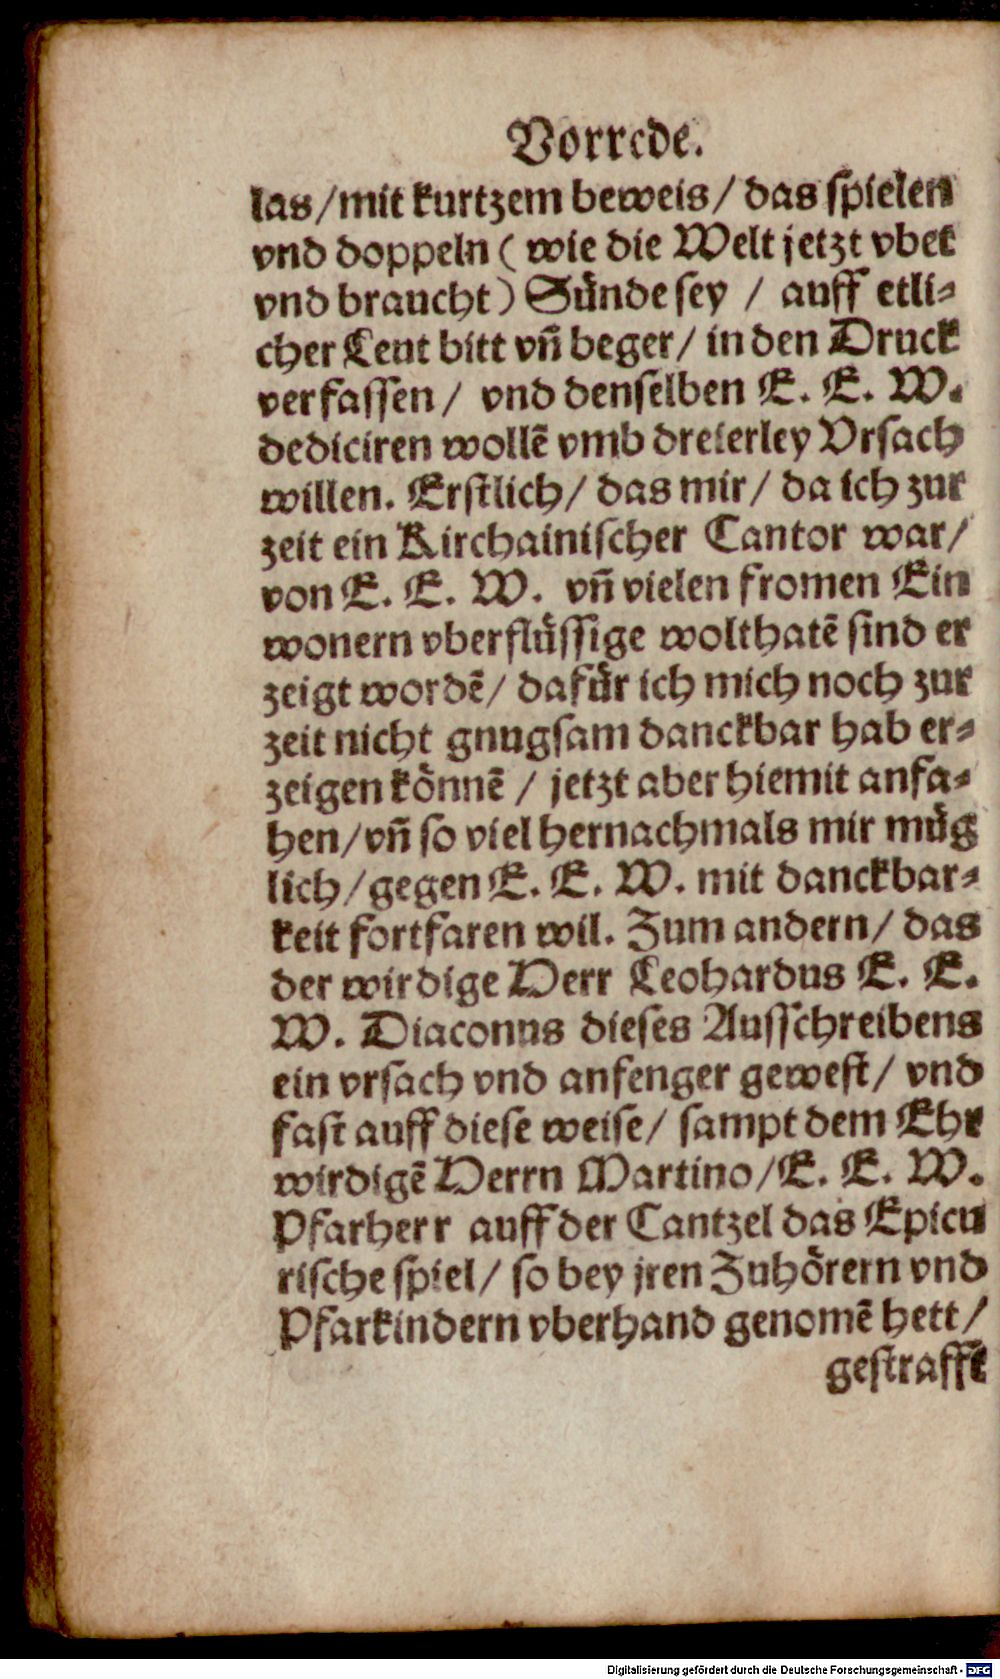 Vorrede.
las/mit kurtzem beweis/ das spielen
vnd doppeln ( wie die Welt jetzt vbet
vnd braucht) Sünde sey / auff etli⸗
cher Leut bitt vñ beger/ in den Druck
verfassen/ vnd denselben E. E. W.
dediciren wollẽ vmb dreierley Vrsach
willen. Erstlich/ das mir/ da ich zur
zeit ein Kirchainischer Cantor war/
von E. E. W. vñ vielen fromen Ein
wonern vberflüssige wolthatẽ sind er
zeigt wordẽ/ dafür ich mich noch zur
zeit nicht gnugsam danckbar hab er⸗
zeigen könnẽ / jetzt aber hiemit anfa⸗
hen/vñ so viel hernachmals mir müg
lich/gegen E. E. W. mit danckbar⸗
keit fortfaren wil. Zum andern/ das
der wirdige Herr Leohardus E. E.
W. Diaconus dieses Ausschreibens
ein vrsach vnd anfenger gewest/ vnd
fast auff diese weise/ sampt dem Ehr
wirdigẽ Herrn Martino/E. E. W.
Pfarherr auff der Cantzel das Epicu
rische spiel/ so bey jren Zuhörern vnd
Pfarkindern vberhand genomẽ hett/
gestrafft
Digitalisierung gefördert durch die Deutsche Forschungsgemeinschaft - DFG